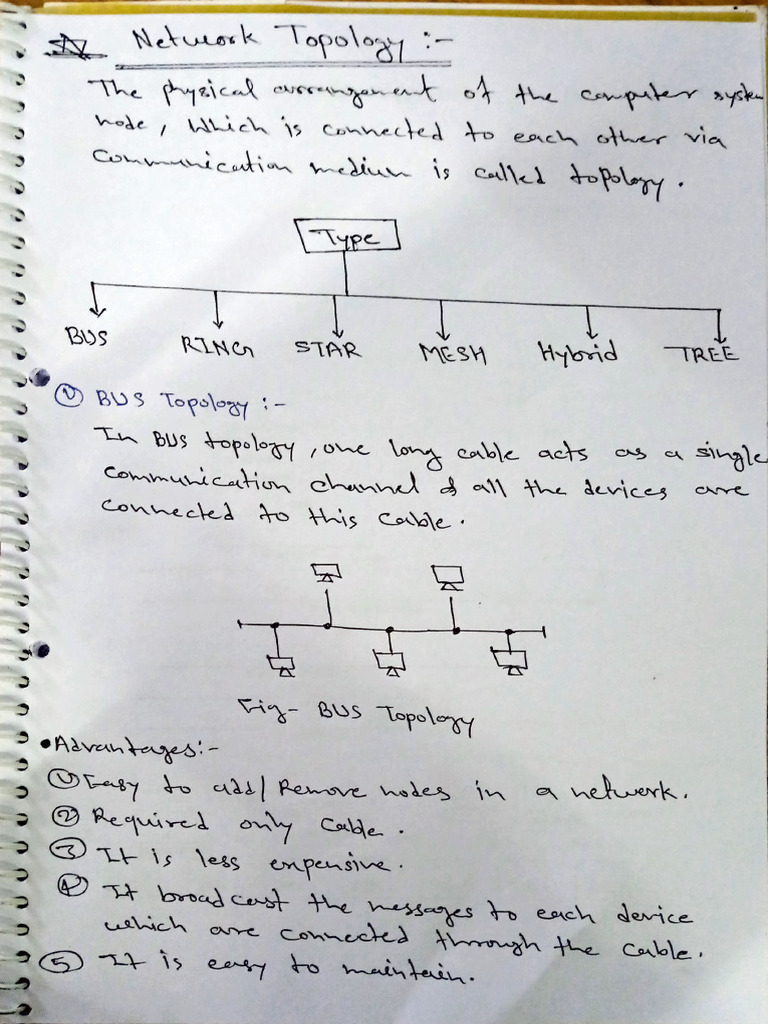 Network Topology :-
The physical arrangement of the computer system
node, Which is connected to each other via
Communication medium is called topology.
Type
BUS RING STAR MESH Hybrid TREE
① BUS Topology :-
In BUS topology, one long cable acts as a single
communication channel & all the devices are
connected to this cable.
Fig- BUS Topology
• Advantages:-
① Easy to add/Remove nodes in a network.
② Required only Cable.
③ It is less expensive.
④ It broadcast the messages to each device
which are connected through the cable.
⑤ It is easy to maintain.